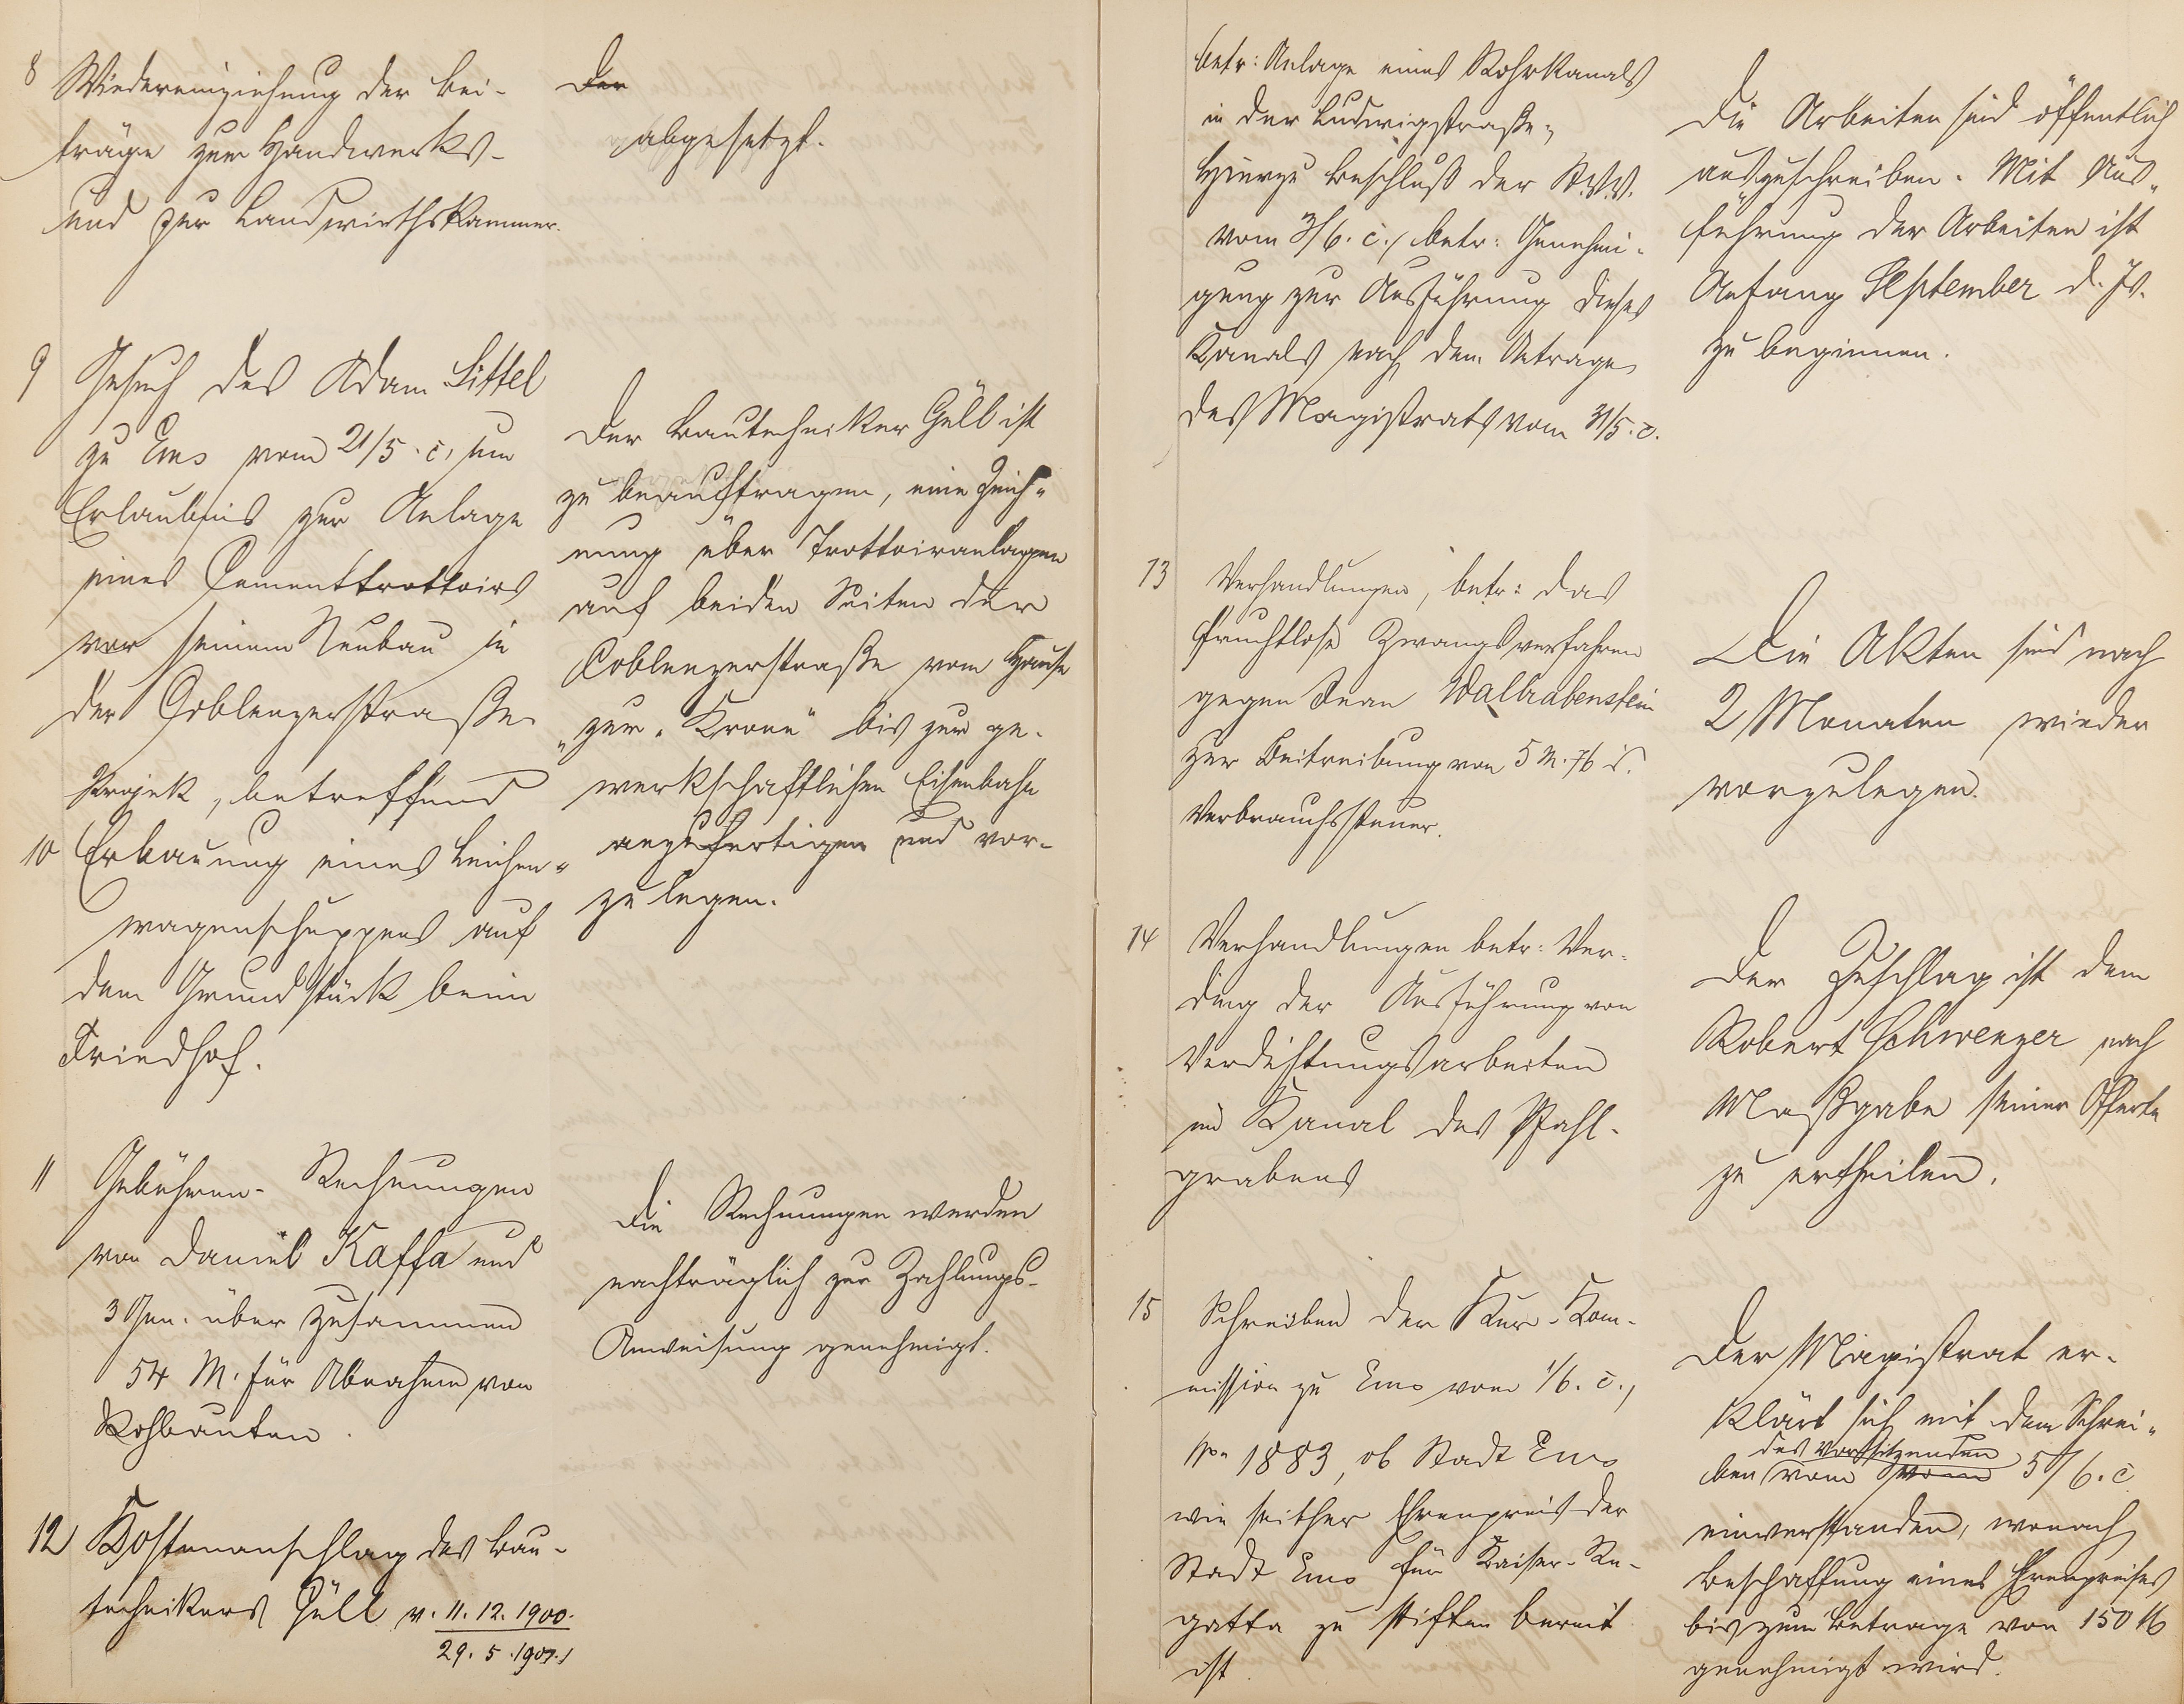 8 Wiedereinziehung der Bei-
träge zur Handwerks-
und zur Landwirthskammer.
Der
abgesetzt.
9 Gesuch des Adam Littel
zu Ems vom 21/5. c. um
Erlaubnis zur Anlage
eines Cementtrottoirs
vor seinem Neubau in
der Coblenzerstraße.
Der Bautechniker Güll ist
zu beauftragen, eine Zeich-
nung über Trottoiranlagen
auf beiden Seiten der
Coblenzerstraße vom Hause
"zur Krone" bis zur ge-
werkschaftlichen Eisenbahn
anzufertigen und vor-
zulegen.
Projek, betreffend
10 Erbauung eines Leichen-
wagenschuppens auf
dem Grundstück beim
Friedhof.
11 Gebühren-Rechnungen
von Daniel Kaffa und
3 Gen. über zusammen
54 M. für Abnahme von
Rohbauten.
Die Rechnungen werden
nachträglich zur Zahlungs-
Anweisung genehmigt.
12 Kostenanschlag des Bau-
technikers Güll v. 11. 12. 1900.
29. 5. 1901.,
betr: Anlage eines Rohrkanals
in der Ludwigstraße;
Hierzu Beschluß der St.V.V.
vom 3/6. c., betr: Genehmi-
gung zur Ausführung dieses
Kanals nach dem Antrage
des Magistrats vom 31/5. c.
Die Arbeiten sind öffentlich
auszuschreiben. Mit Aus-
führung der Arbeiten ist
Anfang September d. Js.
zu beginnen.
13 Verhandlungen, betr: das
fruchtlose Zwangsverfahren
gegen Jean Walbrabenstein
zur Beitreibung von 5 M. 76
Verbrauchssteuer.
Die Akten sind nach
2 Monaten wieder
vorzulegen.
14 Verhandlungen betr: Ver-
ding der Ausführung von
Verdichtungsarbeiten
im Kanal des Pfahl-
grabens
Der Zuschlag ist dem
Robert Schwenzer nach
Maßgabe seiner Offerte
zu ertheilen.
15 Schreiben der Kur-Kom-
mission zu Ems vom 1/6. c.,
No 1883, ob Stadt Ems
wie seither Ehrenpreis der
Stadt Ems für Kaiser-Re-
gatta zu stiften bereit
ist.
Der Magistrat er-
klärt sich mit dem Schrei-
des Vorsitzenden
ben vom vom 5/6. c
einverstanden, wonach
Beschaffung eines Ehrenpreises
bis zum Betrage von 150 M
genehmigt wird.